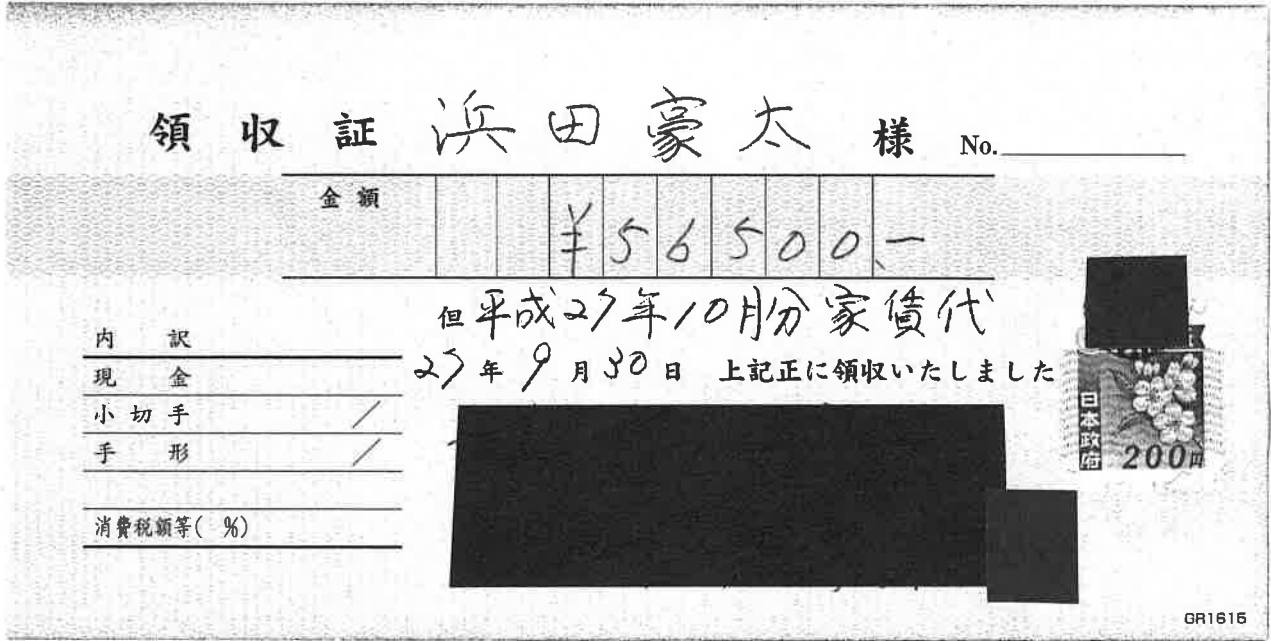 領収証 浜田豪太 様 No.
金額 ¥56500.-
但平成27年10月分家賃代
27年9月30日 上記正に領収いたしました
内訳
現金
小切手 /
手形 /
消費税額等( %)
日本政府
200円
GR1615